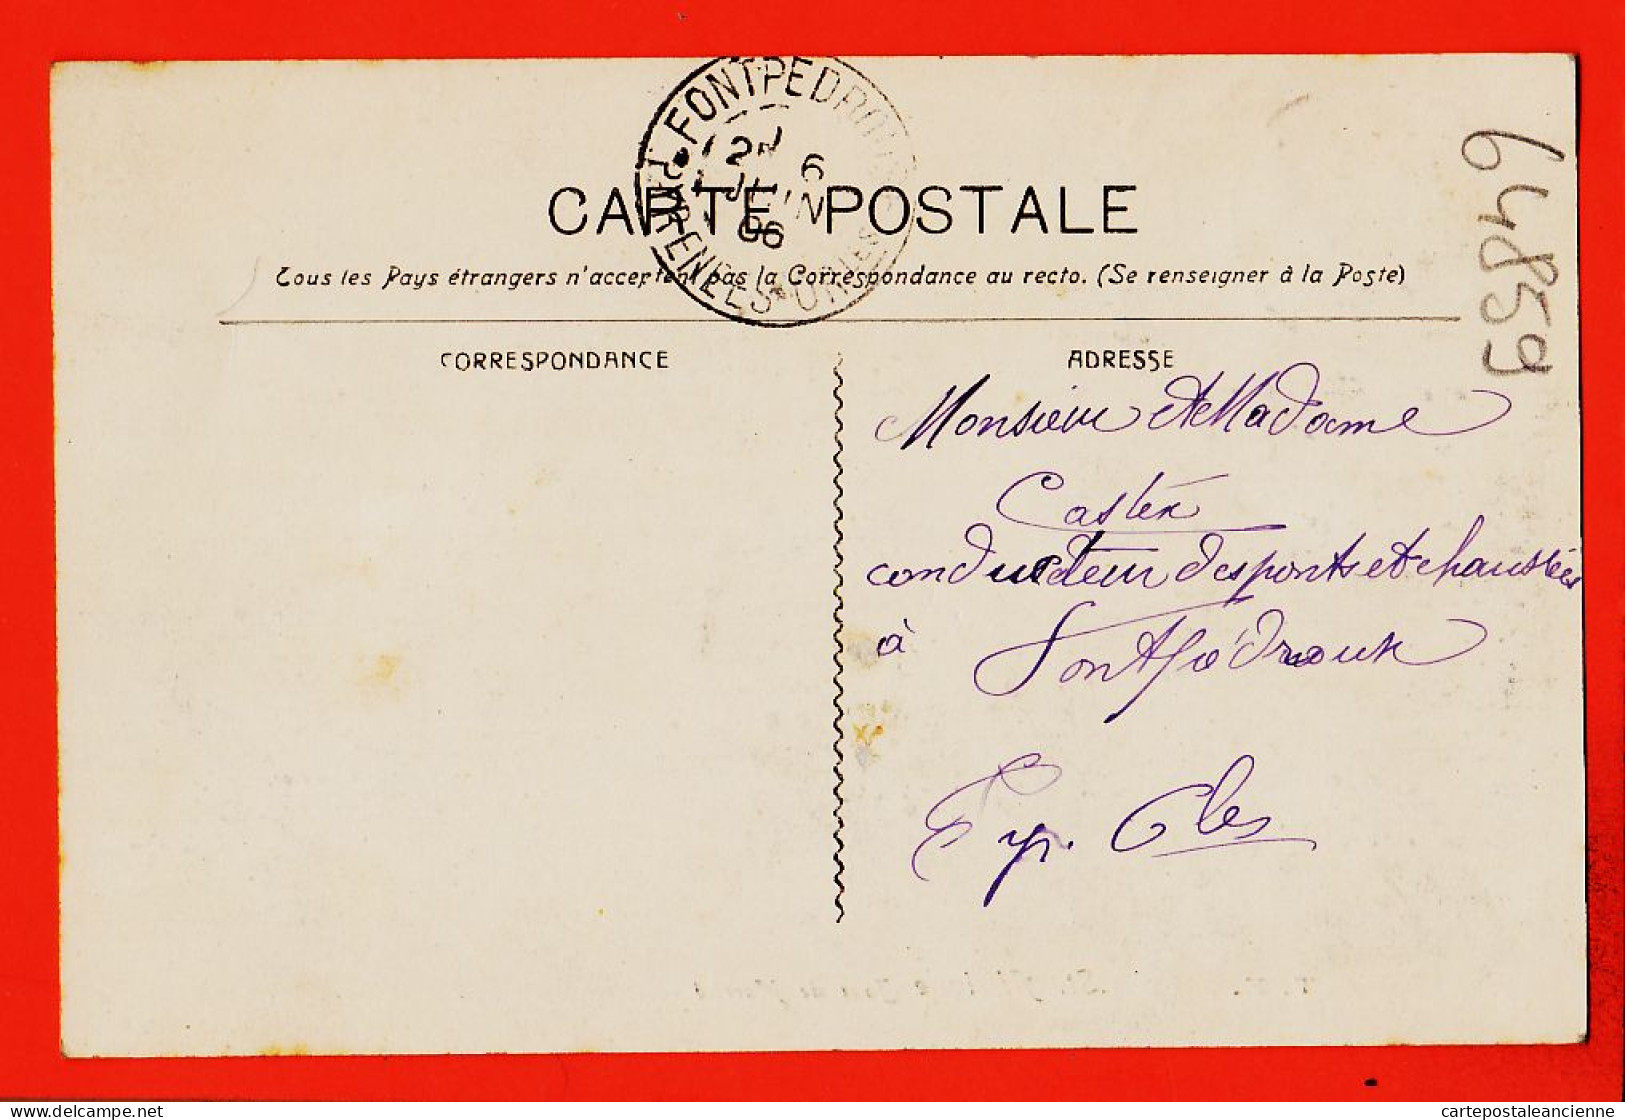 FONTPEDROUSE
12 6
JUIN
06
PYRENEES-ORIES
CARTE POSTALE
Tous les Pays étrangers n'acceptent pas la Correspondance au recto. (Se renseigner à la Poste)
64859
CORRESPONDANCE
ADRESSE
Monsieur et Madame
Castéx
conducteur des ponts et chaussées
à
Fontpédrouse
Pyr. Oles
cartepostaleancienne